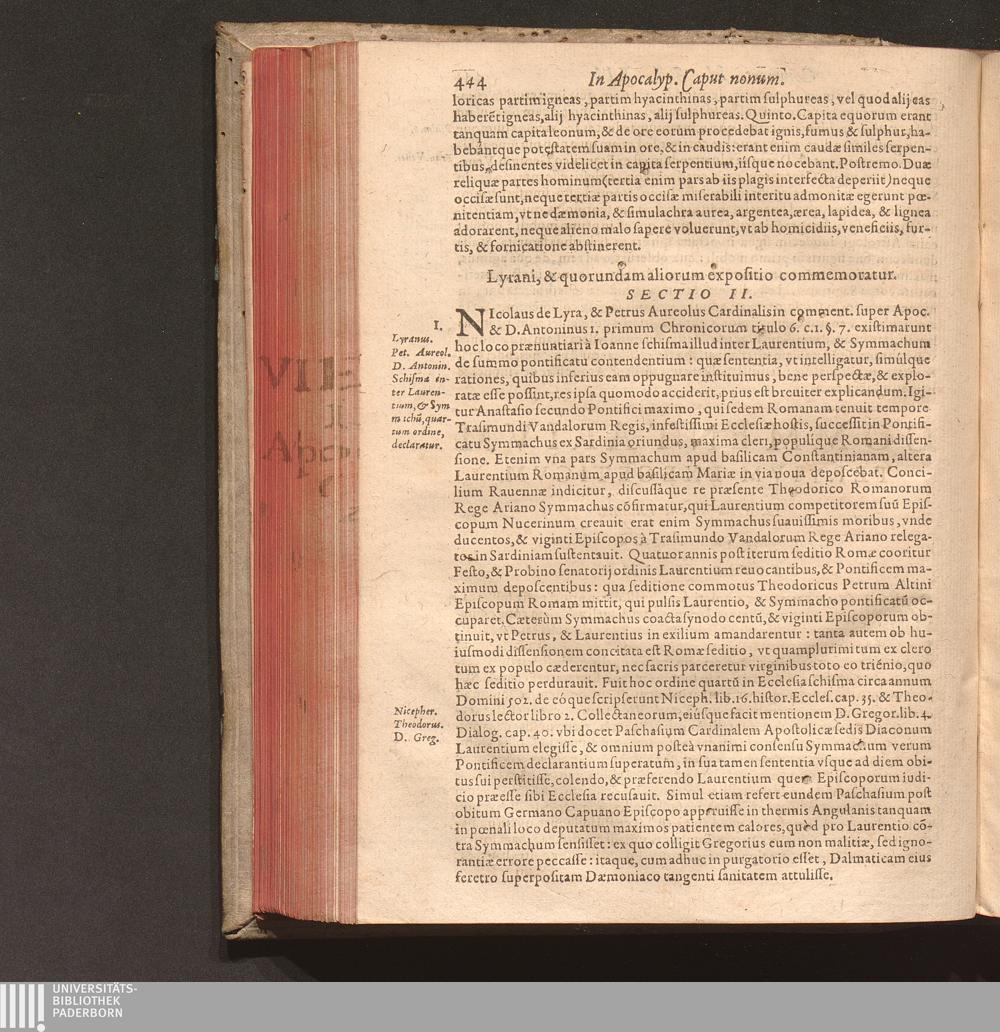 444 In Apocalyp. Caput nonum.
loricas partim igneas, partim hyacinthinas, partim ſulphureas, vel quod alij eas
haberēt igneas, alij hyacinthinas, alij ſulphureas. Quinto. Capita equorum erant
tanquam capita leonum, & de ore eorum procedebat ignis, fumus & ſulphur, ha-
bebántque poteſtatem ſuam in ore, & in caudis: erant enim caudæ ſimiles ſerpen-
tibus, deſinentes videlicet in capita ſerpentium, iíſque nocebant. Poſtremo. Duæ
reliquæ partes hominum (tertia enim pars ab iis plagis interfecta deperiit) neque
occiſæ ſunt, neque tertiæ partis occiſæ miſerabili interitu admonitæ egerunt pœ-
nitentiam, vt ne dæmonia, & ſimulachra aurea, argentea, ærea, lapidea, & lignea
adorarent, neque alieno malo ſapere voluerunt, vt ab homicidiis, veneficiis, fur-
tis, & fornicatione abſtinerent.
Lyrani, & quorundam aliorum expoſitio commemoratur.
SECTIO II.
I.
Lyranus.
Pet. Aureol.
D. Antonin.
Schiſma in-
ter Lauren-
tium, & Sym
machū, quar-
tum ordine,
declaratur.
NIcolaus de Lyra, & Petrus Aureolus Cardinalis in comment. ſuper Apoc.
& D. Antoninus 1. primum Chronicorum titulo 6. c. 1. §. 7. exiſtimarunt
hoc loco prænuntiari à Ioanne ſchiſma illud inter Laurentium, & Symmachum
de ſummo pontificatu contendentium: quæ ſententia, vt intelligatur, ſimúlque
rationes, quibus inferius eam oppugnare inſtituimus, bene perſpectæ, & explo-
ratæ eſſe poſſint, res ipſa quomodo acciderit, prius eſt breuiter explicandum. Igi-
tur Anaſtaſio ſecundo Pontifici maximo, qui ſedem Romanam tenuit tempore
Traſimundi Vandalorum Regis, infeſtiſſimi Eccleſiæ hoſtis, ſucceſſit in Pontifi-
catu Symmachus ex Sardinia oriundus, maxima cleri, populique Romani diſſen-
ſione. Etenim vna pars Symmachum apud baſilicam Conſtantinianam, altera
Laurentium Romanum apud baſilicam Mariæ in via noua depoſcebat. Conci-
lium Rauennæ indicitur, diſcuſsàque re præſente Theodorico Romanorum
Rege Ariano Symmachus cōfirmatur, qui Laurentium competitorem ſuū Epiſ-
copum Nucerinum creauit erat enim Symmachus ſuauiſſimis moribus, vnde
ducentos, & viginti Epiſcopos à Traſimundo Vandalorum Rege Ariano relega-
tos in Sardiniam ſuſtentauit. Quatuor annis poſt iterum ſeditio Romæ cooritur
Feſto, & Probino ſenatorij ordinis Laurentium reuocantibus, & Pontificem ma-
ximum depoſcentibus: qua ſeditione commotus Theodoricus Petrum Altini
Epiſcopum Romam mittit, qui pulſis Laurentio, & Symmacho pontificatū oc-
cuparet. Cæterùm Symmachus coacta ſynodo centū, & viginti Epiſcoporum ob-
tinuit, vt Petrus, & Laurentius in exilium amandarentur: tanta autem ob hu-
iuſmodi diſſenſionem concitata eſt Romæ ſeditio, vt quamplurimi tum ex clero
tum ex populo cæderentur, nec ſacris parceretur virginibus toto eo triénio, quo
hæc ſeditio perdurauit. Fuit hoc ordine quartū in Eccleſia ſchiſma circa annum
Domini 502. de eóque ſcripſerunt Niceph. lib. 16. hiſtor. Eccleſ. cap. 35. & Theo-
dorus lector libro 2. Collectaneorum, eiúſque facit mentionem D. Gregor. lib. 4.
Nicepher.
Theodorus.
D. Greg.
Dialog. cap. 40. vbi docet Paſchaſium Cardinalem Apoſtolicæ ſedis Diaconum
Laurentium elegiſſe, & omnium poſteà vnanimi conſenſu Symmachum verum
Pontificem declarantium ſuperatum, in ſua tamen ſententia vſque ad diem obi-
tus ſui perſtitiſſe, colendo, & præferendo Laurentium quem Epiſcoporum iudi-
cio præeſſe ſibi Eccleſia recuſauit. Simul etiam refert eundem Paſchaſium poſt
obitum Germano Capuano Epiſcopo apparuiſſe in thermis Angulanis tanquam
in pœnali loco deputatum maximos patientem calores, quòd pro Laurentio cō-
tra Symmachum ſenſiſſet: ex quo colligit Gregorius eum non malitiæ, ſed igno-
rantiæ errore peccaſſe: itaque, cum adhuc in purgatorio eſſet, Dalmaticam eius
feretro ſuperpoſitam Dæmoniaco tangenti ſanitatem attuliſſe.
UNIVERSITÄTS-
BIBLIOTHEK
PADERBORN